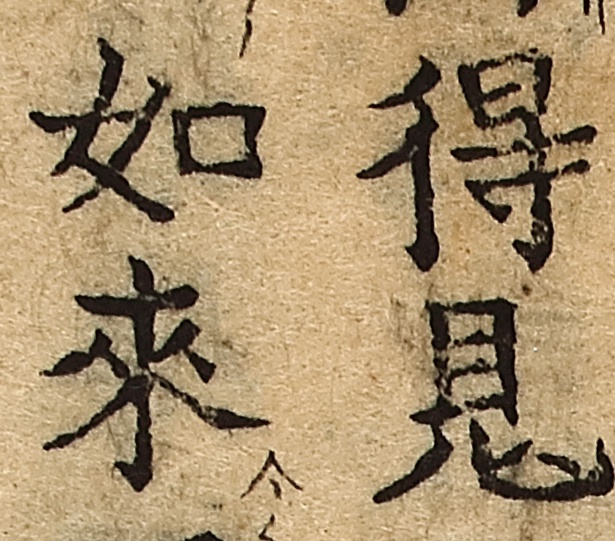 得見
如來